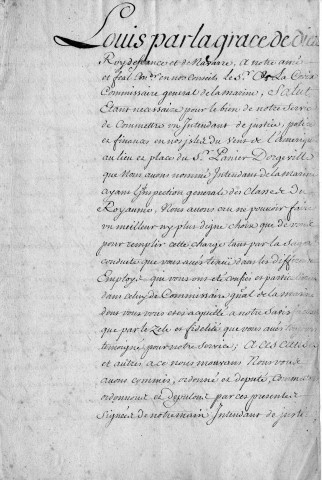 Louis par la grace de dieu
Roy de france et de Navarre, A notre amé
et feal Con.er en nos conseils le S.r De La Croix
Commissaire general de la marine, Salut
Etant necessaire pour le bien de notre Servi
de Commettre un Intendant de justice, police
et finances en nos isles du Vent de l'Amerique
au lieu et place du S.r Lanier Dorgeville
que Nous avons nommé Intendant de la marine
ayant l'Inspection generale des Classes de
Royaume, Nous avons cru ne pouvoir faire
un meilleur ny plus digne choix que de vous
pour remplir cette charge tant par la Sage
conduite que vous avés tenue dans les differens
Employs qui vous ont eté confiés et particu
dans celuy de Commissaire gñal de la marine
dont vous vous etes acquitté a notre Satisfaction
que par le Zele et fidelité que vous avés toujours
temoigné pour notre service; A ces causes
et autres a ce nous mouvans Nous vous
avons commis, ordonné et deputé, Commettons
ordonnons et deputons par ces presentes
Signées de notre main Intendant de justice